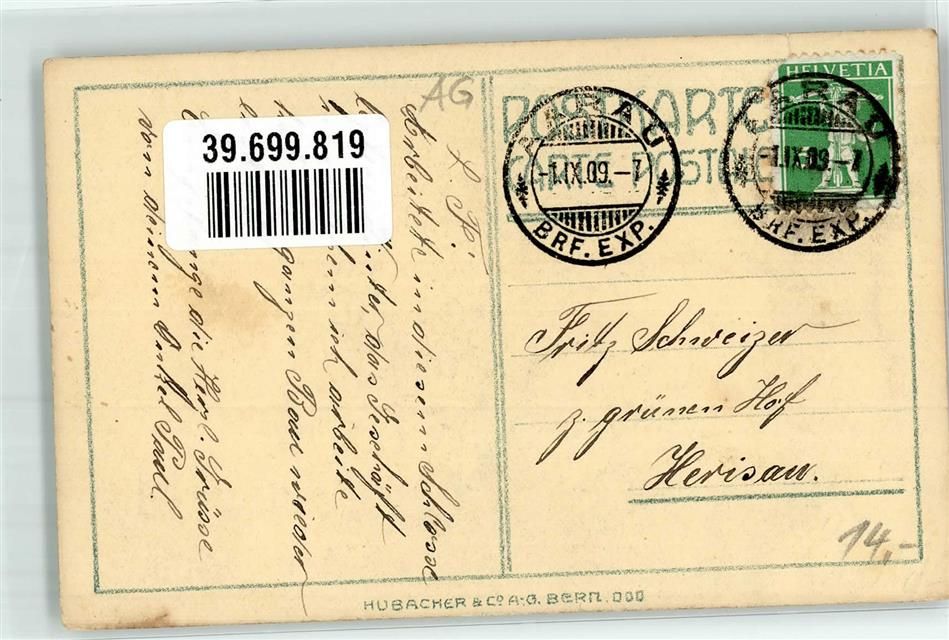 AG
POSTKARTE
CARTE POSTALE
HELVETIA
AARAU
-1.IX.09.-7
BRF. EXP.
AARAU
-1.IX.09.-7
BRF. EXP.
39.699.819
L. P.
Arbeitete in diesem Schlosse
unter, das Geschäft
ich arbeite
gangen Bau wieder
die Herzl. Grüsse
von deinem Onkel Paul.
Fritz Schweizer
z. grünen Hof
Herisau.
14,-
HUBACHER & Co A-G. BERN. 000